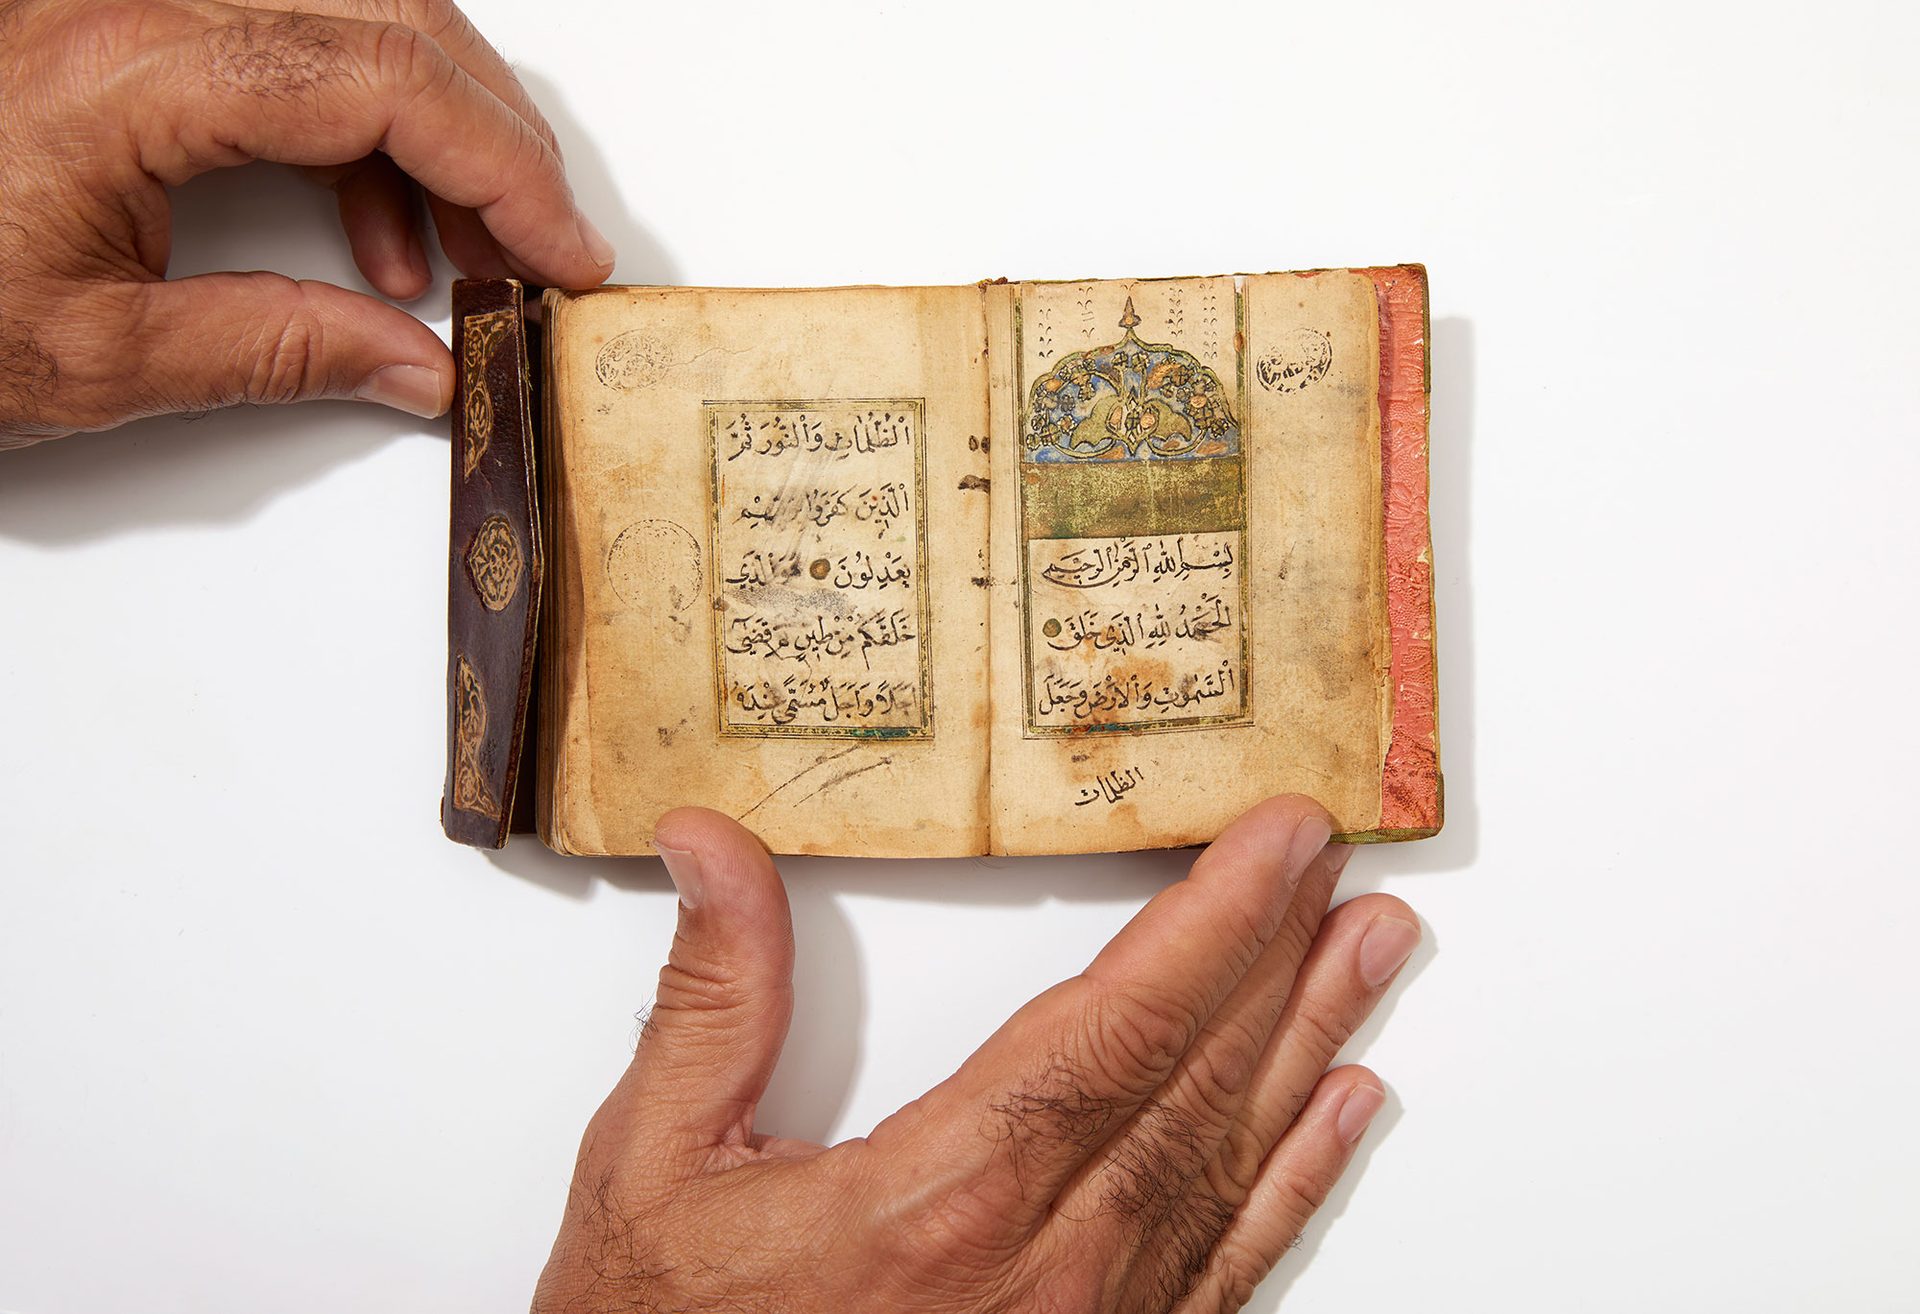 بِسْمِ اللهِ الرَّحْمٰنِ الرَّحِيمِ
اَلْحَمْدُ لِلّٰهِ الَّذِي خَلَقَ
السَّمٰوٰتِ وَالْاَرْضَ وَجَعَلَ
الظلمات
اَلظُّلُمَاتِ وَالنُّورَ ثُمَّ
الَّذِينَ كَفَرُوا بِرَبِّهِمْ
يَعْدِلُونَ هُوَ الَّذِي
خَلَقَكُمْ مِنْ طِينٍ ثُمَّ قَضٰى
اَجَلًا وَاَجَلٌ مُسَمًّى عِنْدَهُ